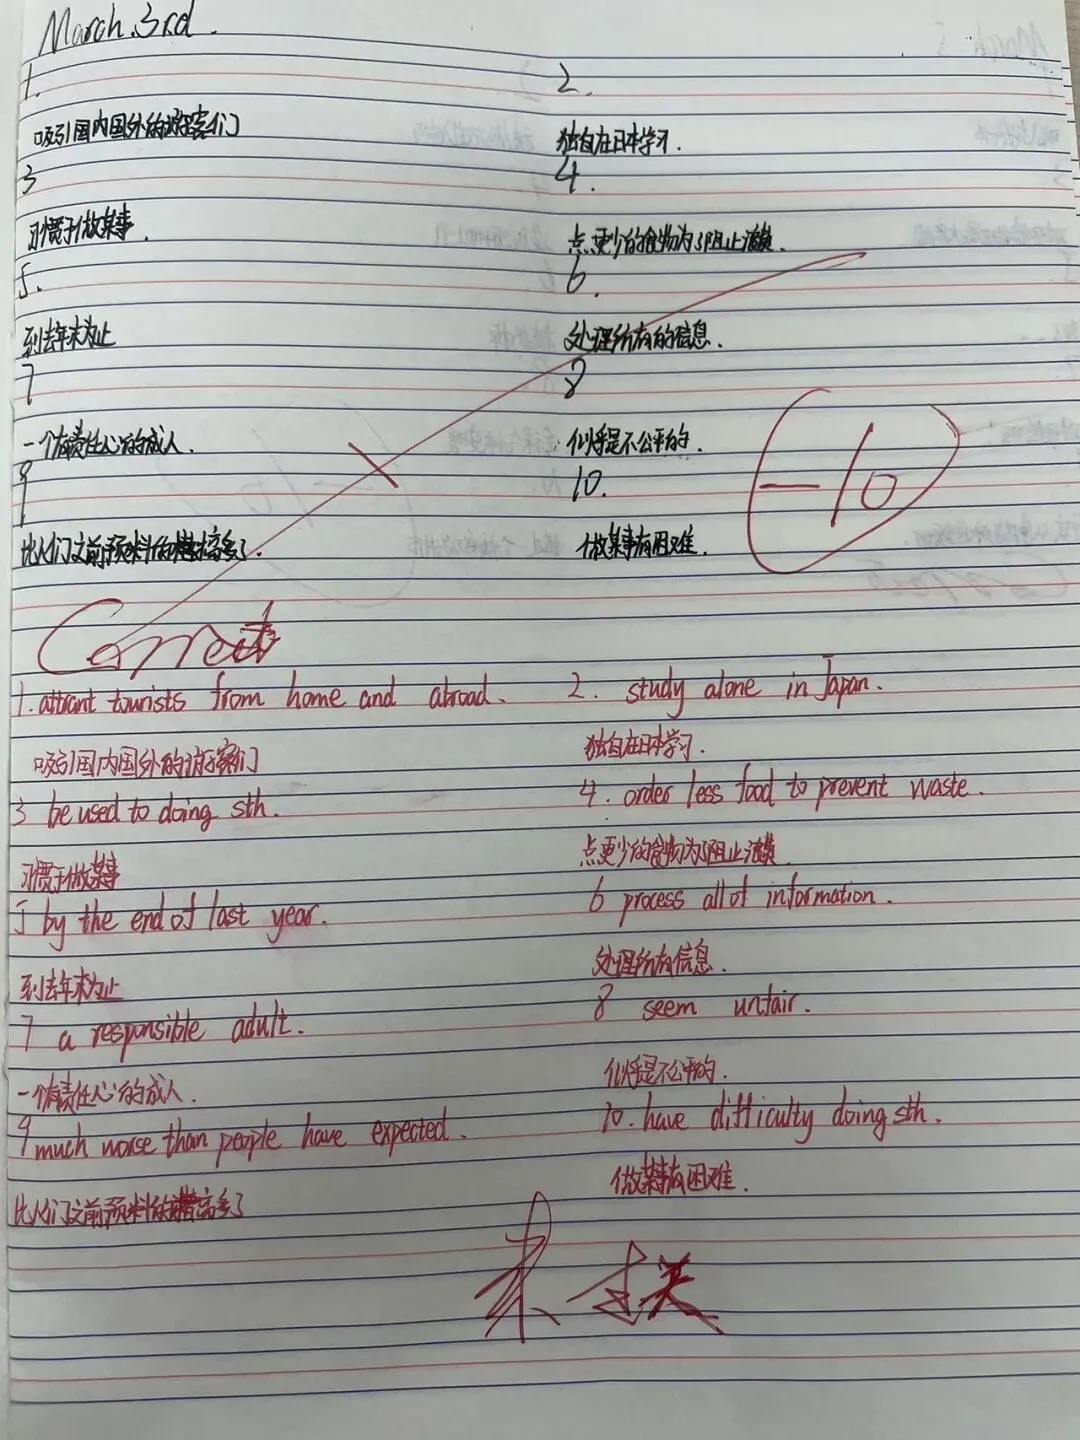 March.3rd.
1. 2.
吸引国内国外的游客们 独自在日本学习.
3 4.
习惯于做某事. 点更少的食物为了阻止浪费.
5. 6.
到去年末为止 处理所有的信息.
7 8
一个有责任心的成人. 似乎是不公平的.
9 10.
比人们之前预料的糟糕多了. 做某事有困难.
-10
Correct
1. attrant tourists from home and abroad. 2. study alone in Japan.
吸引国内国外的游客们 独自在日本学习.
3 be used to doing sth. 4. order less food to prevent waste.
习惯于做某事 点更少的食物为了阻止浪费
5 by the end of last year. 6 process all of information.
到去年末为止 处理所有信息.
7 a responsible adult. 8 seem unfair.
一个有责任心的成人. 似乎是不公平的.
9 much worse than people have expected. 10. have difficulty doing sth.
比人们之前预料的糟糕多了 做某事有困难.
未过关